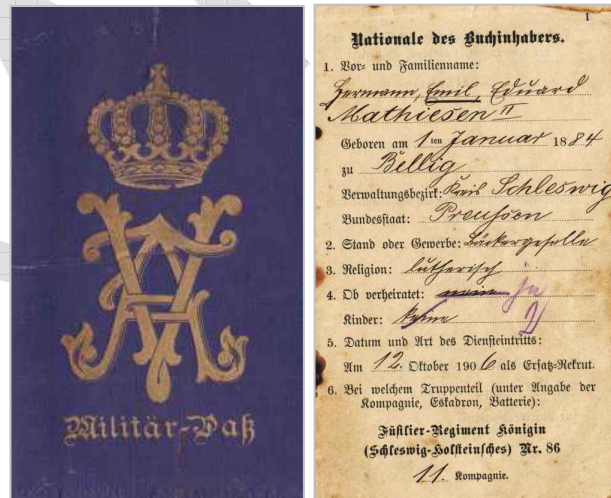 Militär-Paß
1
Nationale des Buchinhabers.
1. Vor- und Familienname:
Hermann, Emil, Eduard
Mathiesen II
Geboren am 1 ten Januar 1884
zu Bellig
Verwaltungsbezirk: Kreis Schleswig
Bundesstaat: Preußen
2. Stand oder Gewerbe: Bäckergeselle
3. Religion: lutherisch
4. Ob verheiratet: nein ja
Kinder: keine 2
5. Datum und Art des Diensteintritts:
Am 12. Oktober 1906 als Ersatz-Rekrut.
6. Bei welchem Truppenteil (unter Angabe der
Kompagnie, Eskadron, Batterie):
Füsilier-Regiment Königin
(Schleswig-Holsteinsches) Nr. 86
11. Kompagnie.